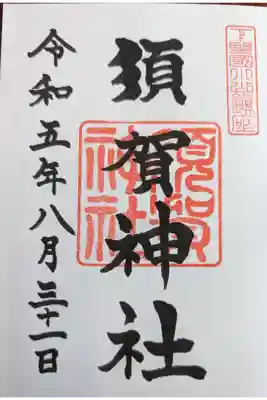 須賀神社
令和五年八月三十一日
須賀神社